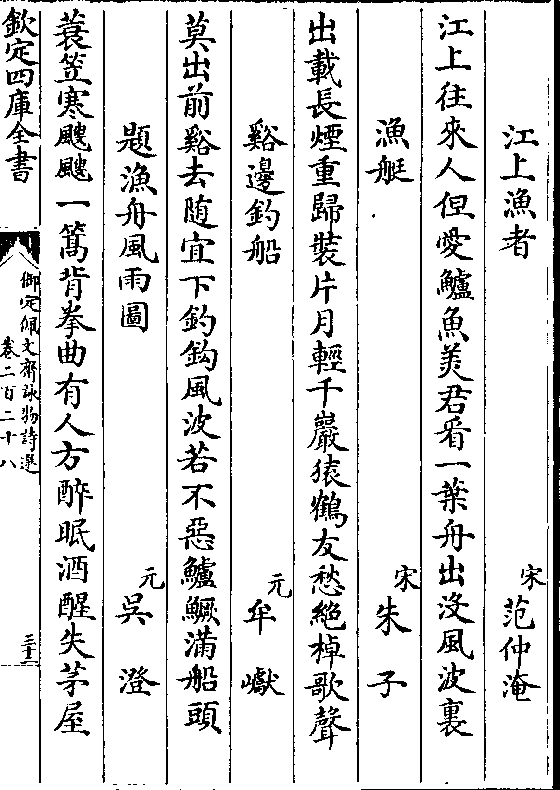 江上漁者　宋　范仲淹
江上往來人但愛鱸魚美君看一葉舟出没風波裏
漁艇　宋　朱子
出載長煙重歸裝片月輕千巖猿鶴友愁絶棹歌聲
谿邊釣船　元　牟巘
莫出前谿去随宜下釣鈎風波若不惡鱸鱖滿船頭
題漁舟風雨圖　元　吳澄
蓑笠寒颼颼一篙背拳曲有人方醉眠酒醒失茅屋
欽定四庫全書
御定佩文齋詠物詩選
卷二百二十八
三十三